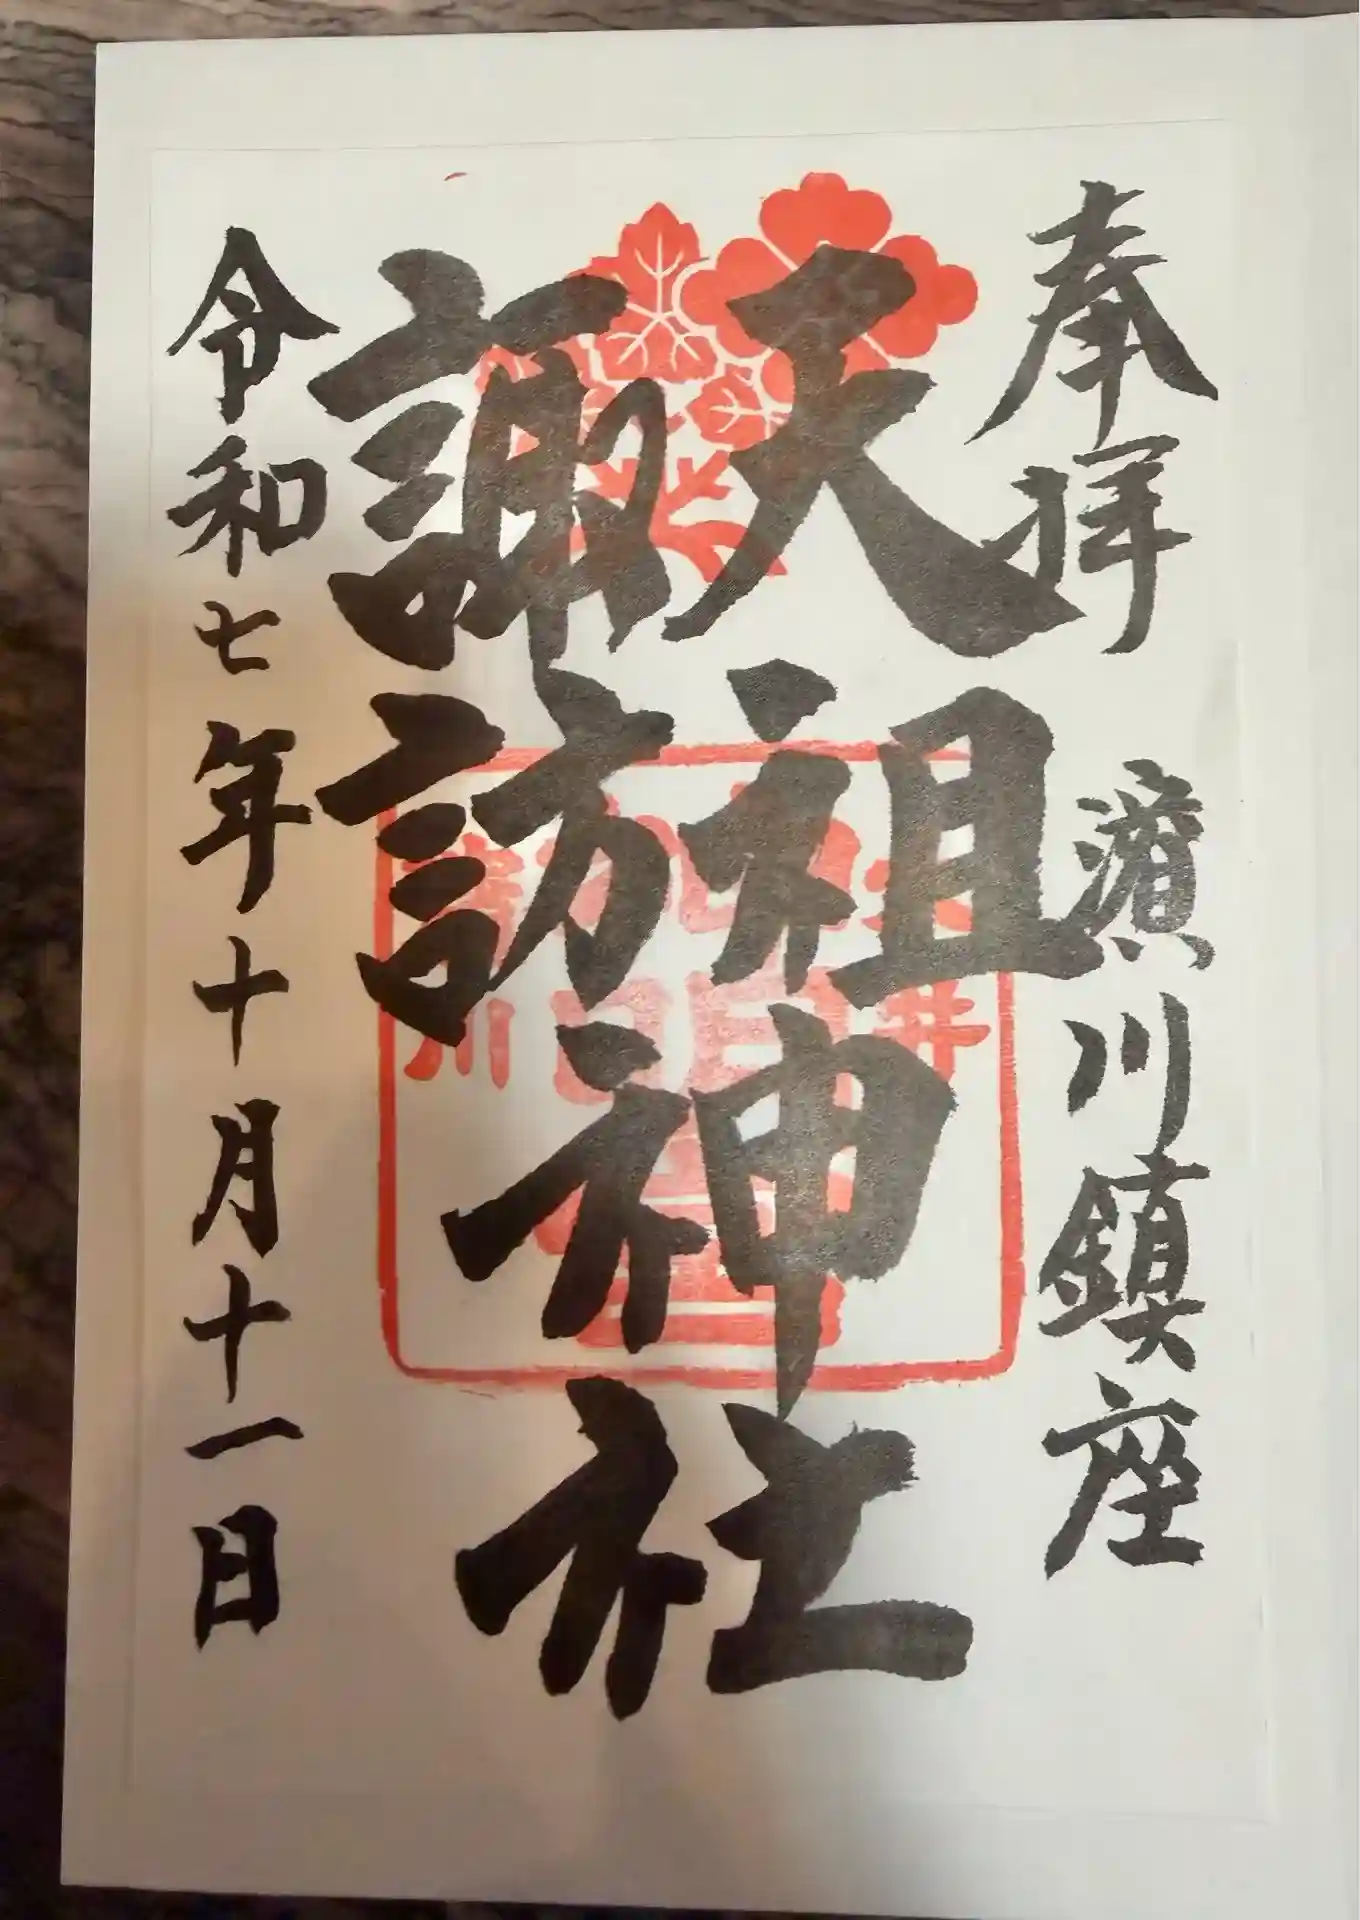 奉拝 濱川鎮座
天祖
諏訪
神社
令和七年十月十一日